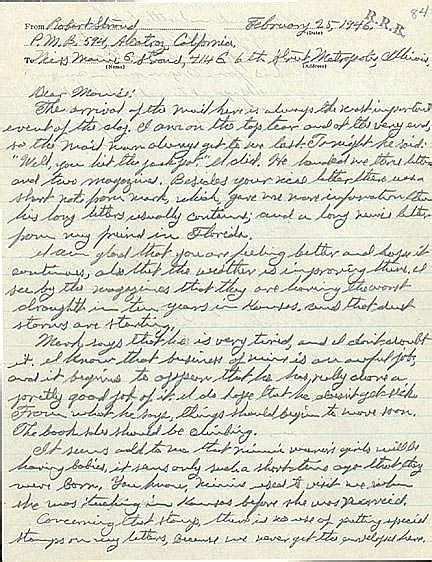 84
R.R.R.
From Robert Stroud February 25, 1946.
(Date)
P.M.B. 594, Alcatraz, California,
To Miss Mamie E. Stroud, 714 E. 6th Street Metropolis, Illinois,
(Name) (Address)
Dear Mamie:
The arrival of the mail here is always the most important
event of the day. I am on the top tear and at the very end,
so the mail man always get to me last. Tonight he said:
"Well, you hit the jack pot." I did. He handed me three letters
and two magazines. Besides your nice letter there was a
short note from Mark, which gave me more information than
his long letters usually contains, and a long newsie letter
from my friend in Florida.
I am glad that you are feeling better and hope it
continues, also that the weather is improving there. I
see by the magazines that they are having the worst
draughth in ten years in Kansas, and that dust
storms are starting.
Mark says that he is very tired, and I don't doubt
it. I know that business of mine is an awful job,
and it begins to appear that he has really done a
pretty good job of it. I do hope that he doesn't get sick
From what he says, things should begin to move soon.
The book should be climbing.
It seems odd to me that girls will be
having babies, it seems only such a short time ago that they
were born. You know, used to visit me when
she was teaching in Kansas before she was married.
Concerning that stamp, there is no use of putting special
stamps on my letters, because we never get the envelopes here.